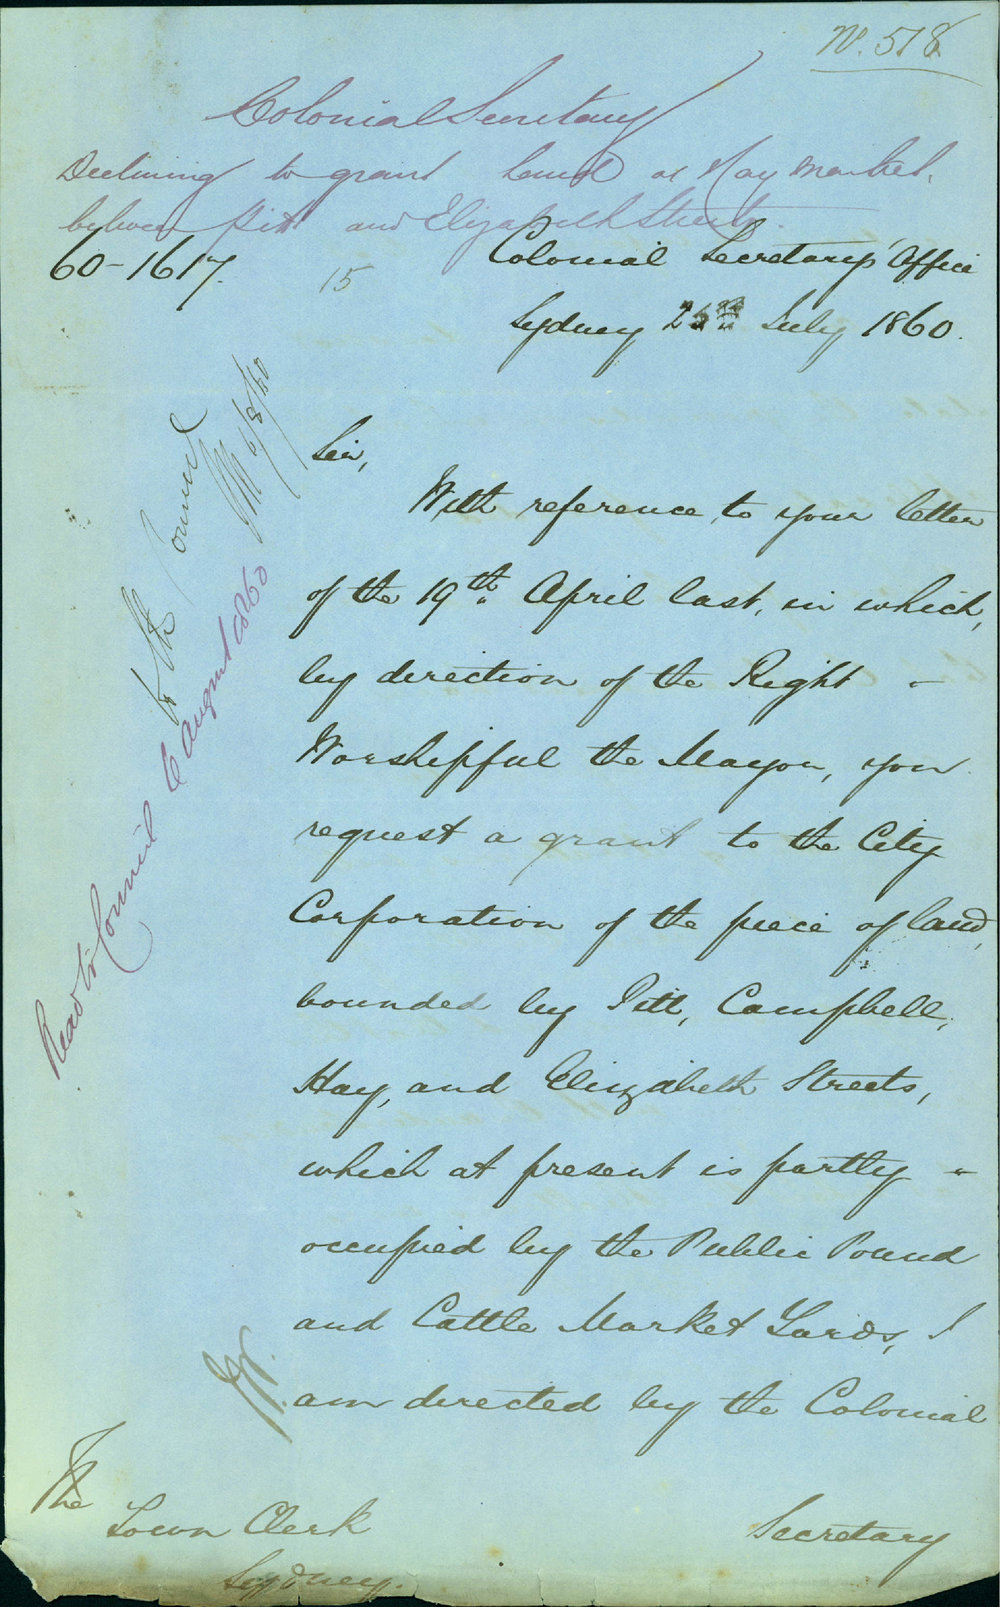 No. 518
Colonial Secretary
Declining to grant land at Hay Market,
between Pitt and Elizabeth Streets.
60-1617.
15
Colonial Secretary's Office
Sydney 26th July 1860.
Sir,
With reference, to your letter
of the 19th. April last, in which,
by direction of the Right
Worshipful the Mayor, you
request a grant to the City
Corporation of the piece of land,
bounded by Pitt, Campbell,
Hay, and Elizabeth Streets,
which at present is partly
occupied by the Public Pound
and Cattle Market Yards, I
am directed by the Colonial
Secretary
The
Town Clerk
Sydney.
to the Council
6/8/60
Read to Council 6 August 1860